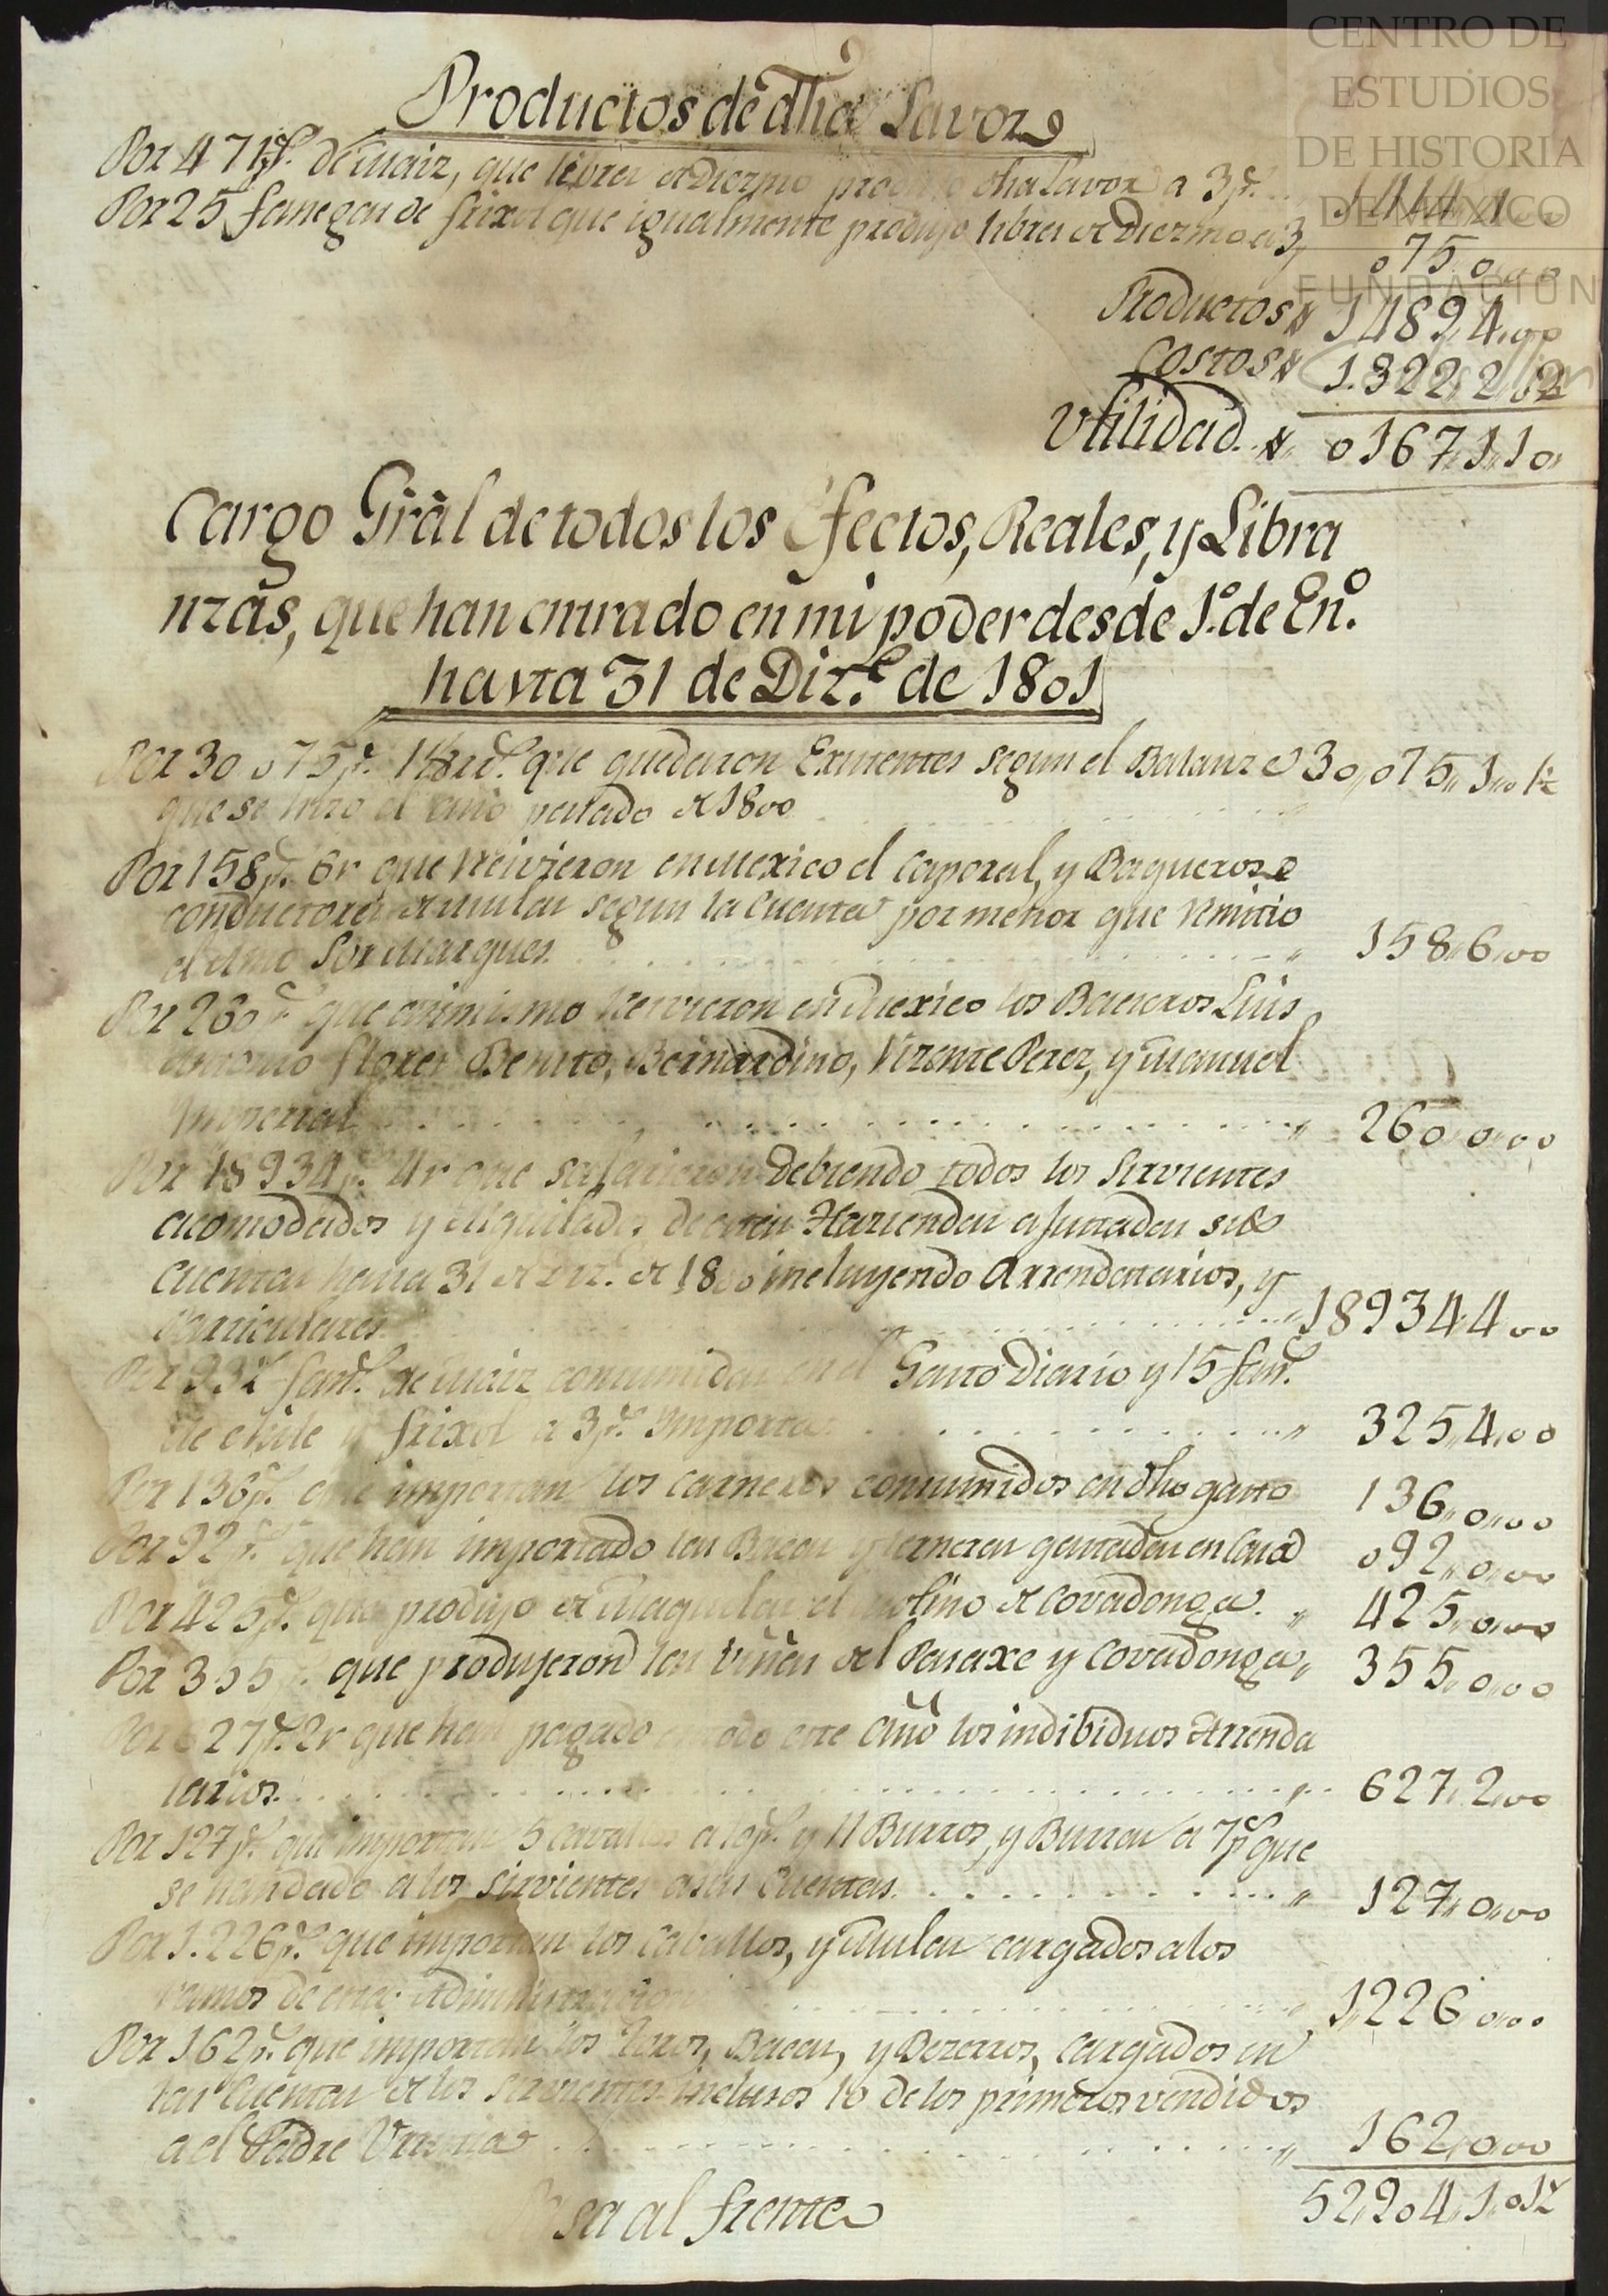 CENTRO DE
ESTUDIOS
DE HISTORIA
DE MEXICO
FUNDACIÓN
Productos de dha Lavor
Por 471 f.s de maiz, que libres de Diezmo produjo dha Lavor a 3 p.s 1414,,4,,00
Por 25 fanegas de frixol que igualmente produjo libres de Diezmo a 3 p 075,,0,,00
Productos 1489,,4,,00
Costos 1.322,,2,,02
Vtilidad 0167,,1,,10
Cargo Grâl de todos los Efectos, Reales, y Libra
nzas, que han entrado en mi poder desde 1.º de En.º
hasta 31 de Diz.e de 1801
Por 30,,075 p.s que quedaron Existentes segun el Balanze 30,,075,,1,,01½
que se hizo el año pasado de 1800
Por 158 p.s 6 r que recivieron en Mexico el Caporal, y Baqueros
conductores de mulas segun la Cuenta por menor que remitio
el Amo Sor Marques 158,,6,,00
Por 260 p.s que asimismo recivieron en Mexico los Baqueros Luis
Antonio Flores Benito, Bernardino, Vizente Perez, y Manuel
Imperial 260,,0,,00
Por 18934 p.s 4 r que salieron debiendo todos los sirvientes
acomodados y Alquilados de estas Haziendas ajustadas sus
Cuentas hasta 31 de Diz.e de 1800 incluyendo Arrendatarios, y
Particulares 18934,,4,,00
Por 93½ fan.s de Maiz consumidas en el Gasto Diario y 15 fan.s
de chile y frixol a 3 p.s Importa 325,,4,,00
Por 136 p.s que importan los carneros consumidos en dho gasto 136,,0,,00
Por 92 p.s que han importado las Bacas y terneras gastadas en Casa 092,,0,,00
Por 425 p.s que produjo de Maquilas el Molino de Covadonga 425,,0,,00
Por 355 p.s que produjeron las Viñas del Paxaxe y Covadonga 355,,0,,00
Por 627 p.s 2 r que han pagado en todo este Año los indibiduos Arrenda
tarios 627,,2,,00
Por 127 p.s que importan 5 cavallos a 10 p.s y 11 Burros, y Burras a 7 p.s que
se han dado a los sirvientes a sus Cuentas 127,,0,,00
Por 1.226 p.s que importan los Caballos, y Mulas cargados a los
ramos de esta Administracion 1,,226,,0,,00
Por 162 p.s que importan los Toros, Bacas, y Bezerros, Cargados en
las Cuentas de los sirvientes inclusos 10 de los primeros vendidos
a el Padre 162,,0,,00
Pasa al frente 52,,904,,1,,01½